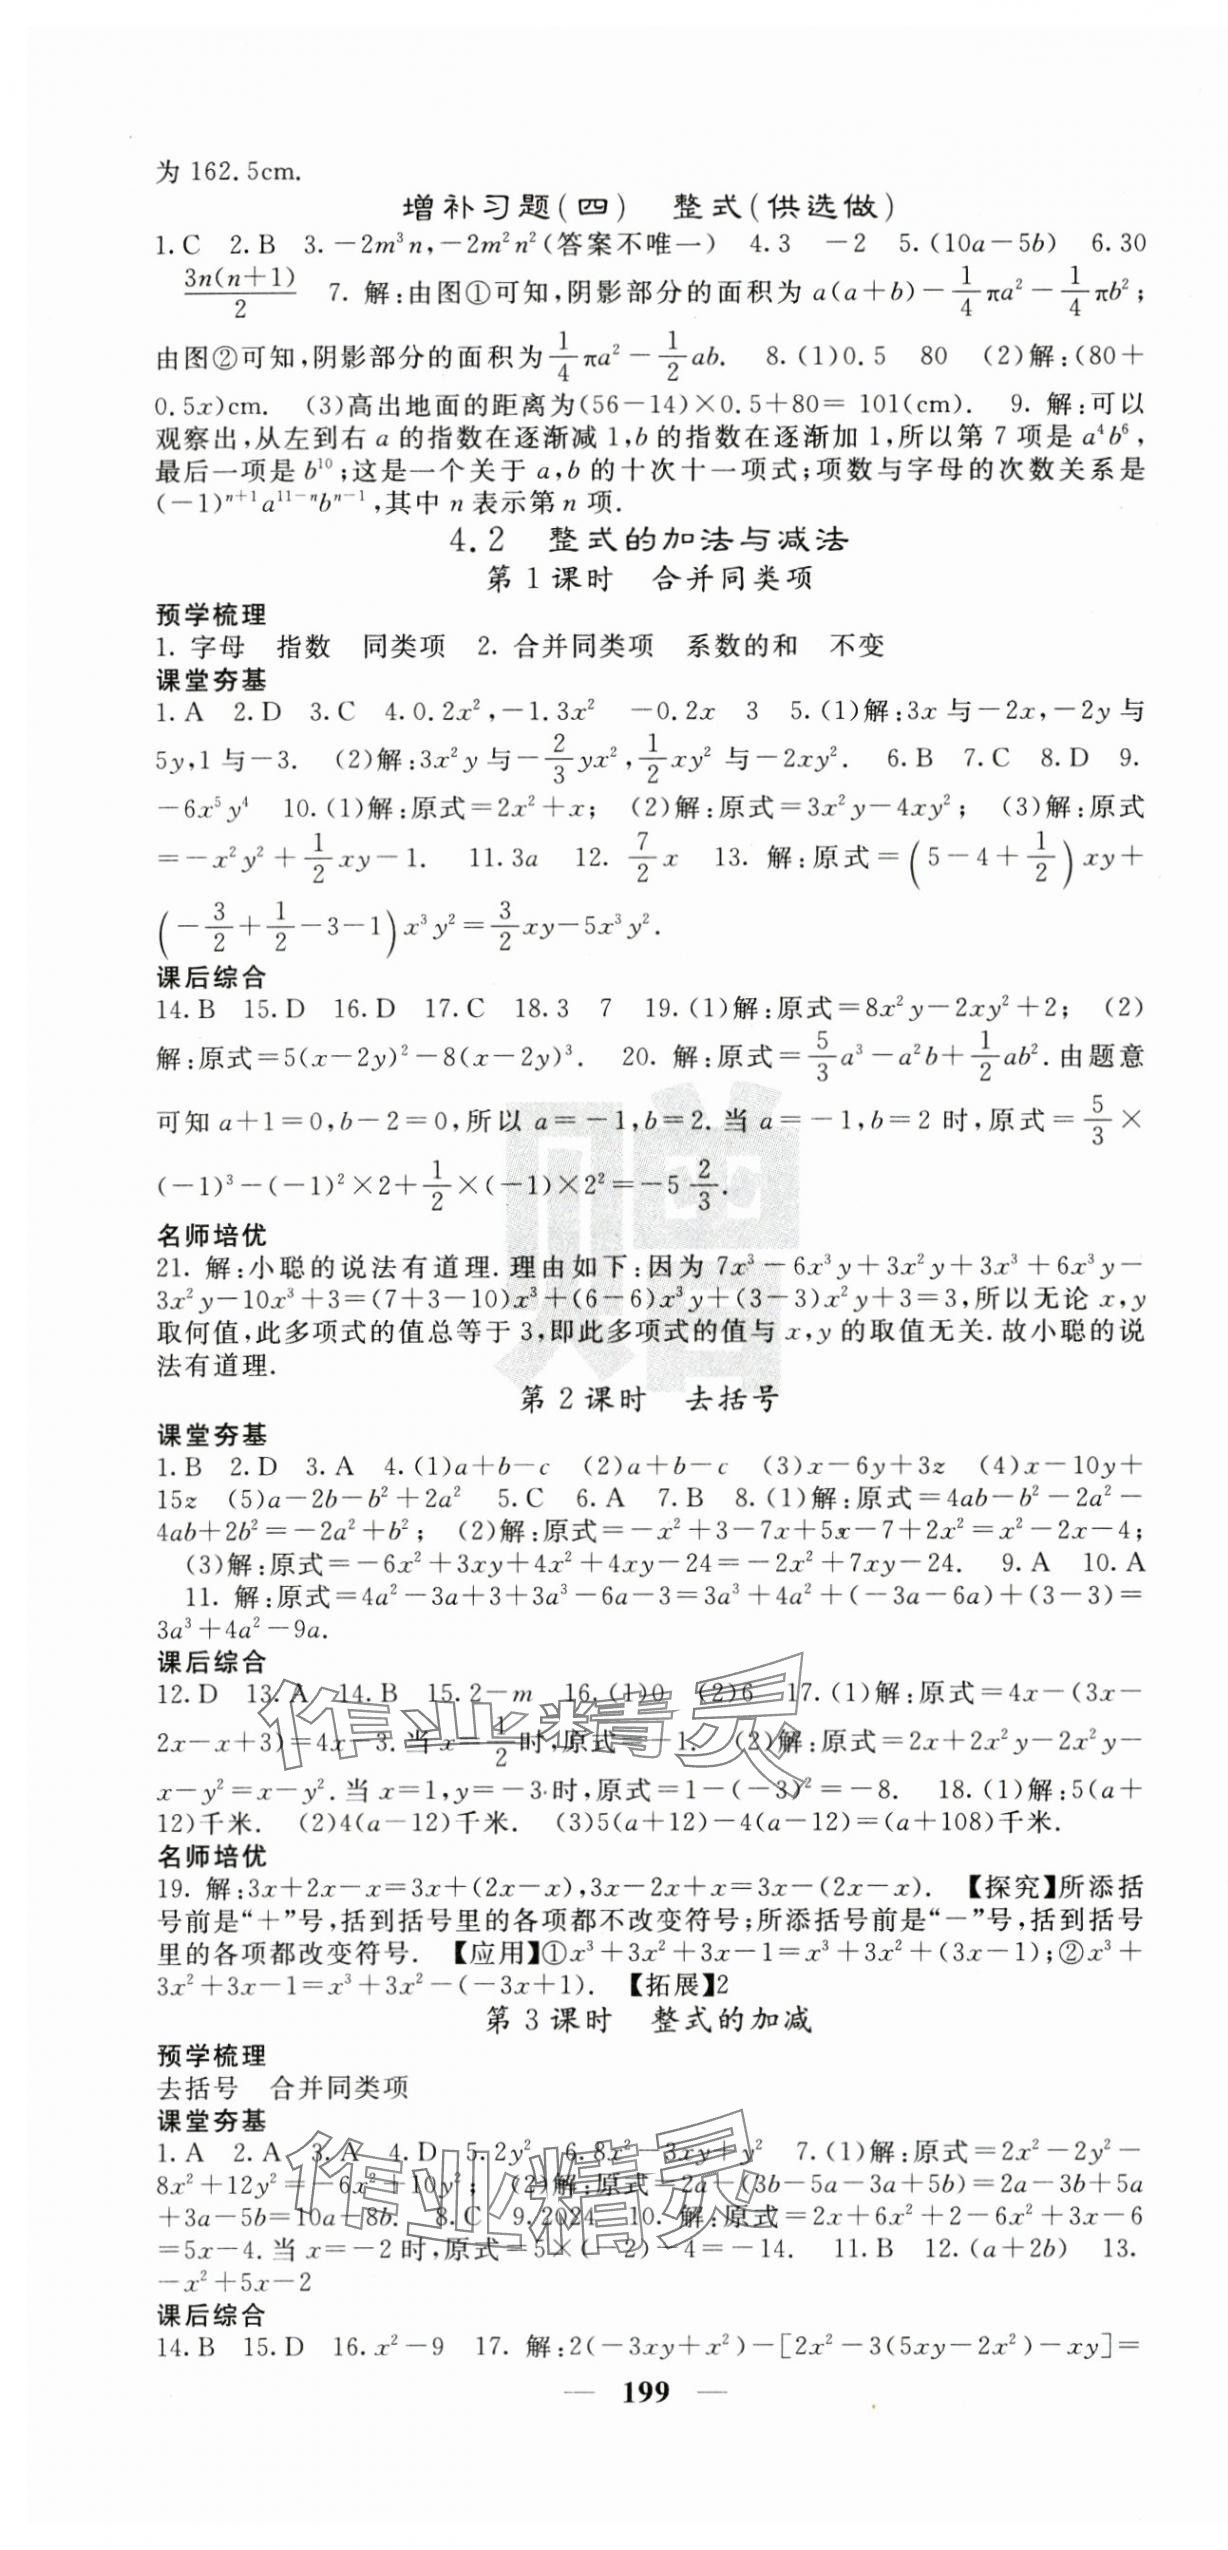 为 162.5cm.
增补习题(四) 整式(供选做)
1.C 2.B 3.－2m³n,－2m²n²(答案不唯一) 4.3 －2 5.(10a－5b) 6.30
3n(n＋1)/2 7. 解:由图①可知,阴影部分的面积为 a(a＋b)－1/4 πa²－1/4 πb²;
由图②可知,阴影部分的面积为 1/4 πa²－1/2 ab. 8.(1)0.5 80 (2)解:(80＋
0.5x)cm. (3)高出地面的距离为(56－14)×0.5＋80＝ 101(cm). 9. 解:可以
观察出,从左到右 a 的指数在逐渐减 1,b 的指数在逐渐加 1,所以第 7 项是 a⁴b⁶,
最后一项是 b¹⁰;这是一个关于 a,b 的十次十一项式;项数与字母的次数关系是
(－1)ⁿ⁺¹a¹¹⁻ⁿbⁿ⁻¹,其中 n 表示第 n 项.
4.2 整式的加法与减法
第 1 课时 合并同类项
预学梳理
1. 字母 指数 同类项 2. 合并同类项 系数的和 不变
课堂夯基
1.A 2.D 3.C 4.0.2x²,－1.3x² －0.2x 3 5.(1)解:3x 与－2x,－2y 与
5y,1 与－3. (2)解:3x²y 与－2/3 yx²,1/2 xy² 与－2xy². 6.B 7.C 8.D 9.
－6x⁵y⁴ 10.(1)解:原式＝2x²＋x; (2)解:原式＝3x²y－4xy²; (3)解:原式
＝－x²y²＋1/2 xy－1. 11.3a 12. 7/2 x 13. 解:原式＝(5－4＋1/2)xy＋
(－3/2＋1/2－3－1)x³y²＝3/2 xy－5x³y².
课后综合
14.B 15.D 16.D 17.C 18.3 7 19.(1)解:原式＝8x²y－2xy²＋2; (2)
解:原式＝5(x－2y)²－8(x－2y)³. 20. 解:原式＝5/3 a³－a²b＋1/2 ab².由题意
可知 a＋1＝0,b－2＝0,所以 a＝－1,b＝2.当 a＝－1,b＝2 时,原式＝5/3×
(－1)³－(－1)²×2＋1/2×(－1)×2²＝－5 2/3.
名师培优
21. 解:小聪的说法有道理.理由如下:因为 7x³－6x³y＋3x²y＋3x³＋6x³y－
3x²y－10x³＋3＝(7＋3－10)x³＋(6－6)x³y＋(3－3)x²y＋3＝3,所以无论 x,y
取何值,此多项式的值总等于 3,即此多项式的值与 x,y 的取值无关.故小聪的说
法有道理.
第 2 课时 去括号
课堂夯基
1.B 2.D 3.A 4.(1)a＋b－c (2)a＋b－c (3)x－6y＋3z (4)x－10y＋
15z (5)a－2b－b²＋2a² 5.C 6.A 7.B 8.(1)解:原式＝4ab－b²－2a²－
4ab＋2b²＝－2a²＋b²; (2)解:原式＝－x²＋3－7x＋5x－7＋2x²＝x²－2x－4;
(3)解:原式＝－6x²＋3xy＋4x²＋4xy－24＝－2x²＋7xy－24. 9.A 10.A
11. 解:原式＝4a²－3a＋3＋3a³－6a－3＝3a³＋4a²＋(－3a－6a)＋(3－3)＝
3a³＋4a²－9a.
课后综合
12.D 13.A 14.B 15.2－m 16.(1)0 (2)6 17.(1)解:原式＝4x－(3x－
2x－x＋3)＝4x－3.当 x＝1/2时,原式＝－1. (2)解:原式＝2x＋2x²y－2x²y－
x－y²＝x－y².当 x＝1,y＝－3 时,原式＝1－(－3)²＝－8. 18.(1)解:5(a＋
12)千米. (2)4(a－12)千米. (3)5(a＋12)－4(a－12)＝(a＋108)千米.
名师培优
19. 解:3x＋2x－x＝3x＋(2x－x),3x－2x＋x＝3x－(2x－x). 【探究】所添括
号前是“＋”号,括到括号里的各项都不改变符号;所添括号前是“－”号,括到括号
里的各项都改变符号. 【应用】①x³＋3x²＋3x－1＝x³＋3x²＋(3x－1);②x³＋
3x²＋3x－1＝x³＋3x²－(－3x＋1). 【拓展】2
第 3 课时 整式的加减
预学梳理
去括号 合并同类项
课堂夯基
1.A 2.A 3.A 4.D 5.2y² 6.8x²－3xy＋y² 7.(1)解:原式＝2x²－2y²－
8x²＋12y²＝－6x²＋10y²; (2)解:原式＝2a－(3b－5a－3a＋5b)＝2a－3b＋5a
＋3a－5b＝10a－8b. 8.C 9.2024 10. 解:原式＝2x＋6x²＋2－6x²＋3x－6
＝5x－4.当 x＝－2 时,原式＝5×(－2)－4＝－14. 11.B 12.(a＋2b) 13.
－x²＋5x－2
课后综合
14.B 15.D 16.x²－9 17. 解:2(－3xy＋x²)－[2x²－3(5xy－2x²)－xy]＝
— 199 —
赠
作业精灵
作业精灵